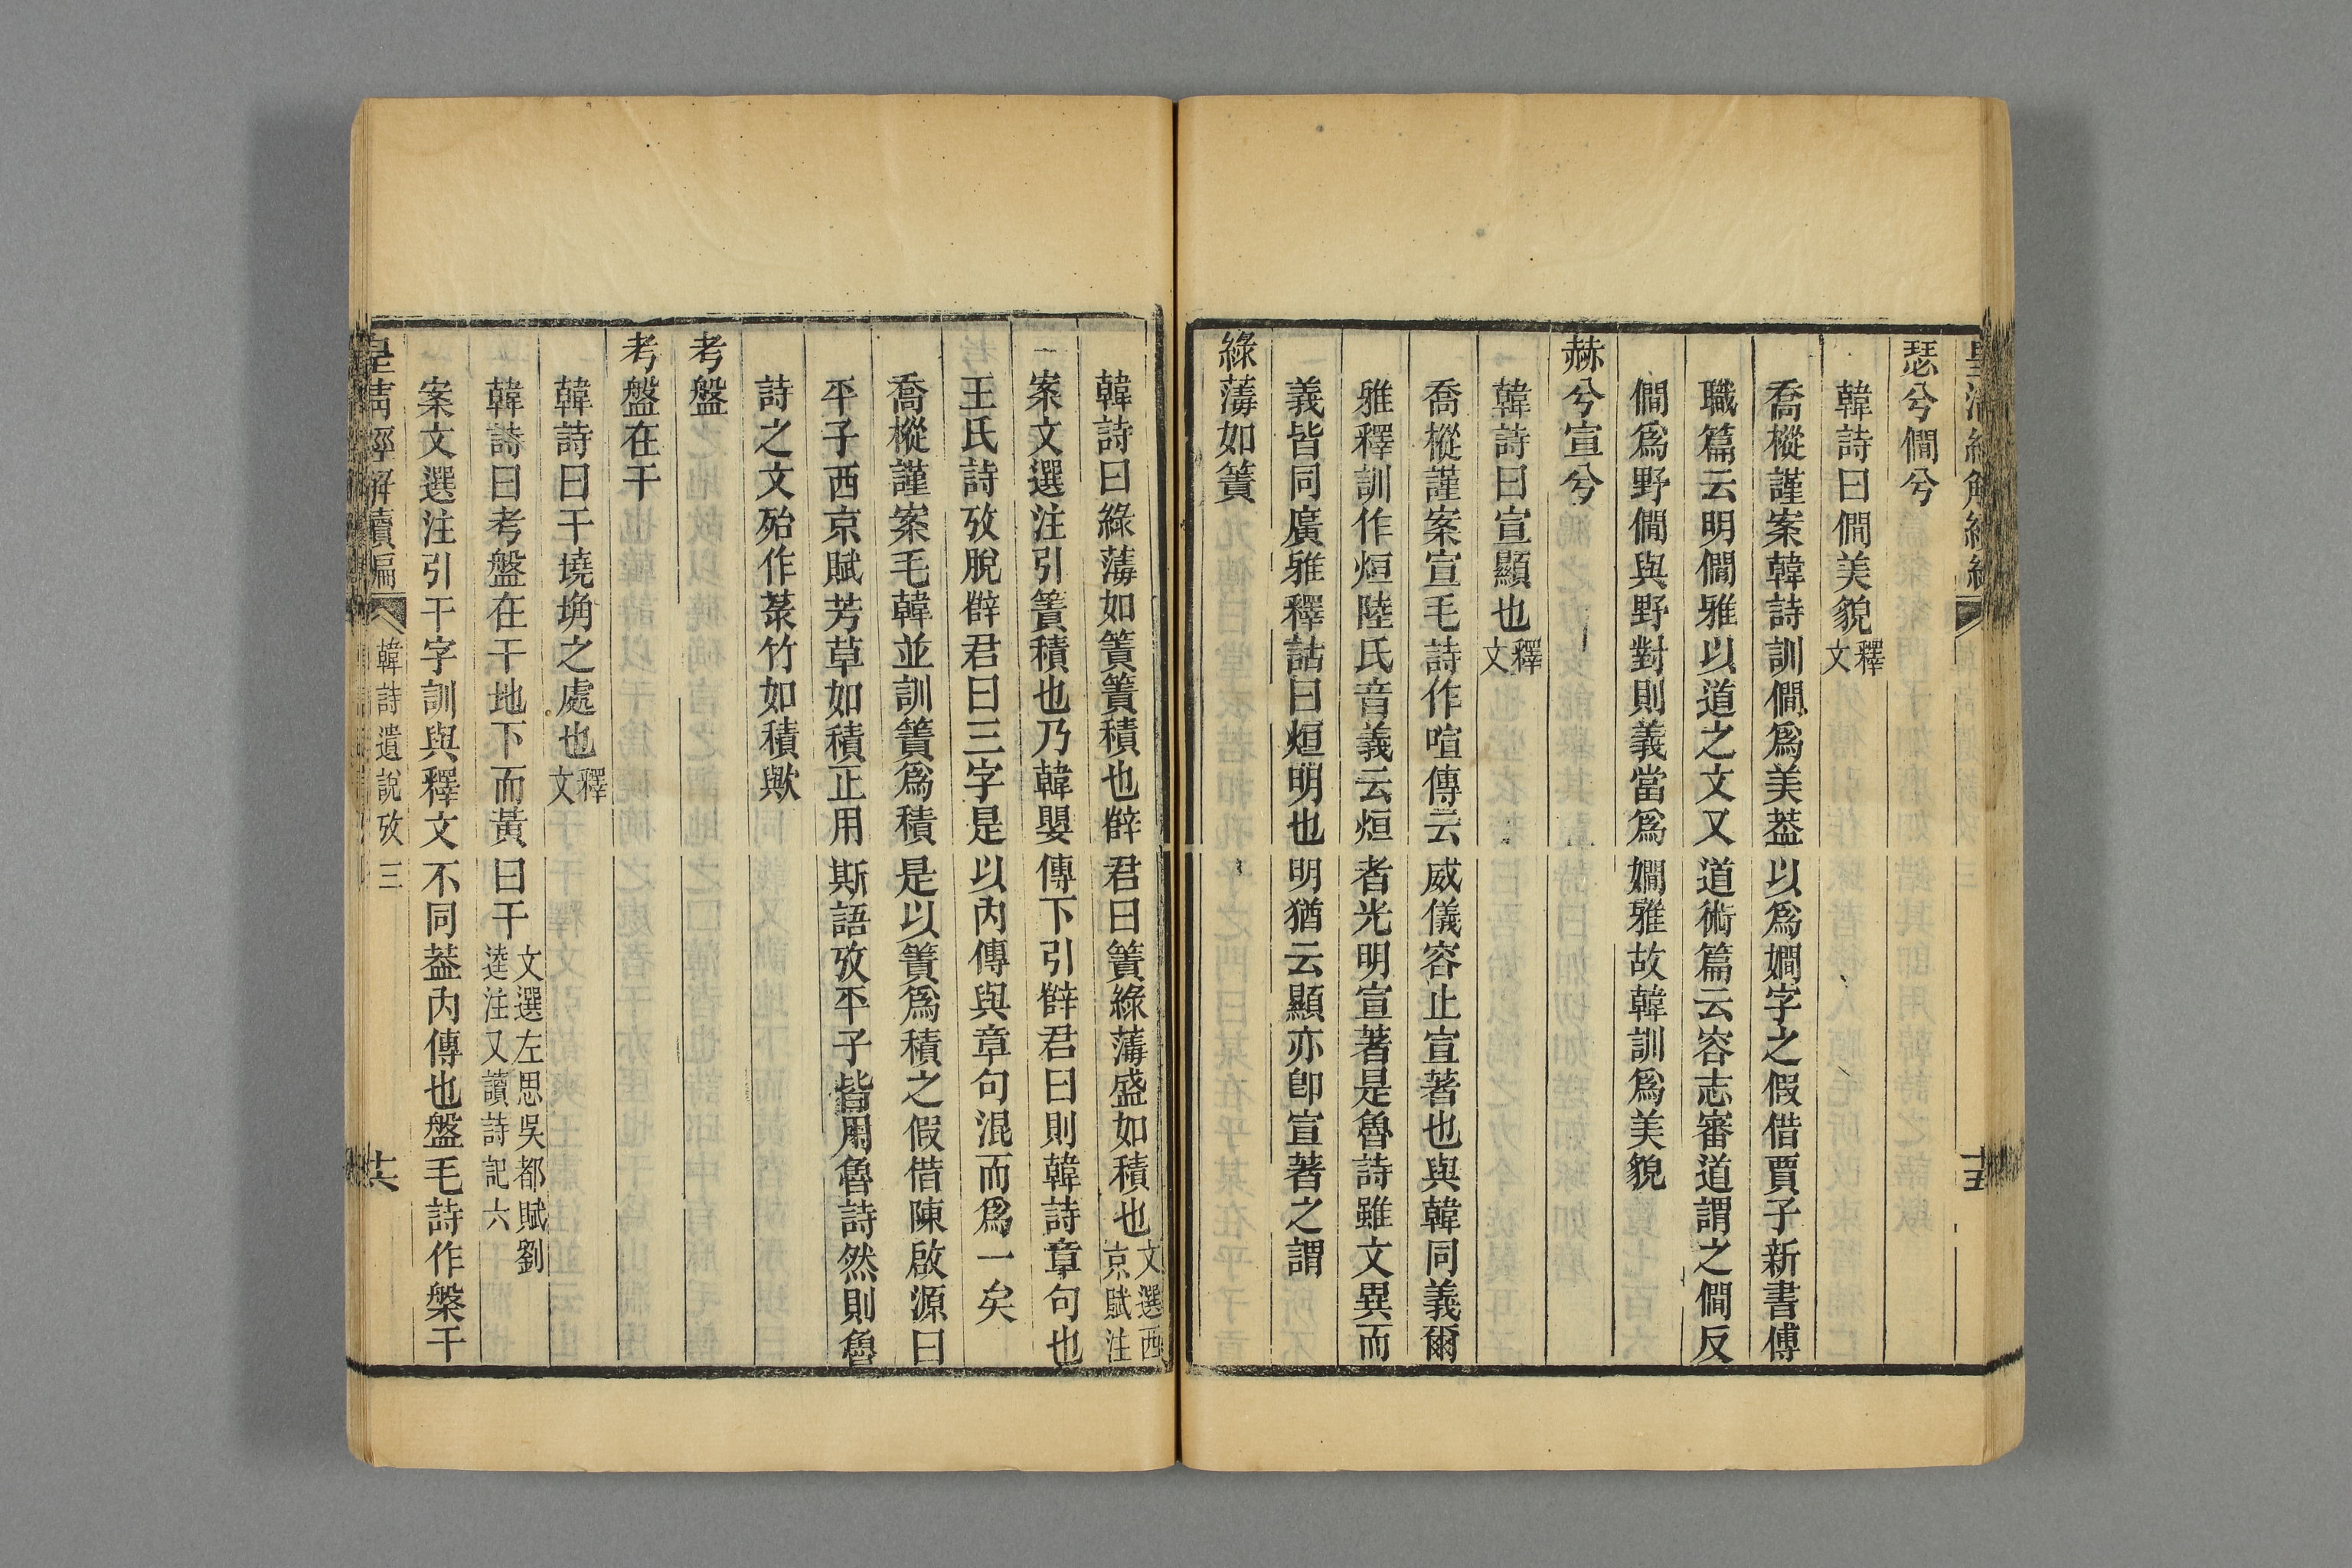 瑟兮僩兮
韓詩曰僩美貌釋文
喬樅謹案韓詩訓僩爲美葢以爲嫺字之假借賈子新書傅
職篇云明僩雅以道之文又道術篇云容志審道謂之僩反
僩爲野僩與野對則義當爲嫺雅故韓訓爲美貌
赫兮宣兮
韓詩曰宣顯也釋文
喬樅謹案宣毛詩作喧傳云威儀容止宣著也與韓同義爾
雅釋訓作烜陸氏音義云烜者光明宣著是魯詩雖文異而
義皆同廣雅釋詁曰烜明也明猶云顯亦卽宣著之謂
綠薄如簀
韓詩曰綠薄如簀簀積也辥君曰簀綠薄盛如積也文選西京賦注
案文選注引簀積也乃韓嬰傳下引辥君曰則韓詩章句也
王氏詩攷脫辥君曰三字是以內傳與章句混而爲一矣
喬樅謹案毛韓並訓簀爲積是以簀爲積之假借陳啟源曰
平子西京賦芳草如積正用斯語攷平子皆用魯詩然則魯
詩之文殆作菉竹如積歟
考盤
考盤在干
韓詩曰干墝埆之處也釋文
韓詩曰考盤在干地下而黃曰干文選左思吳都賦劉逵注又讀詩記六
案文選注引干字訓與釋文不同葢內傳也盤毛詩作槃干
皇淸經解續編 韓詩遺說攷三 十六